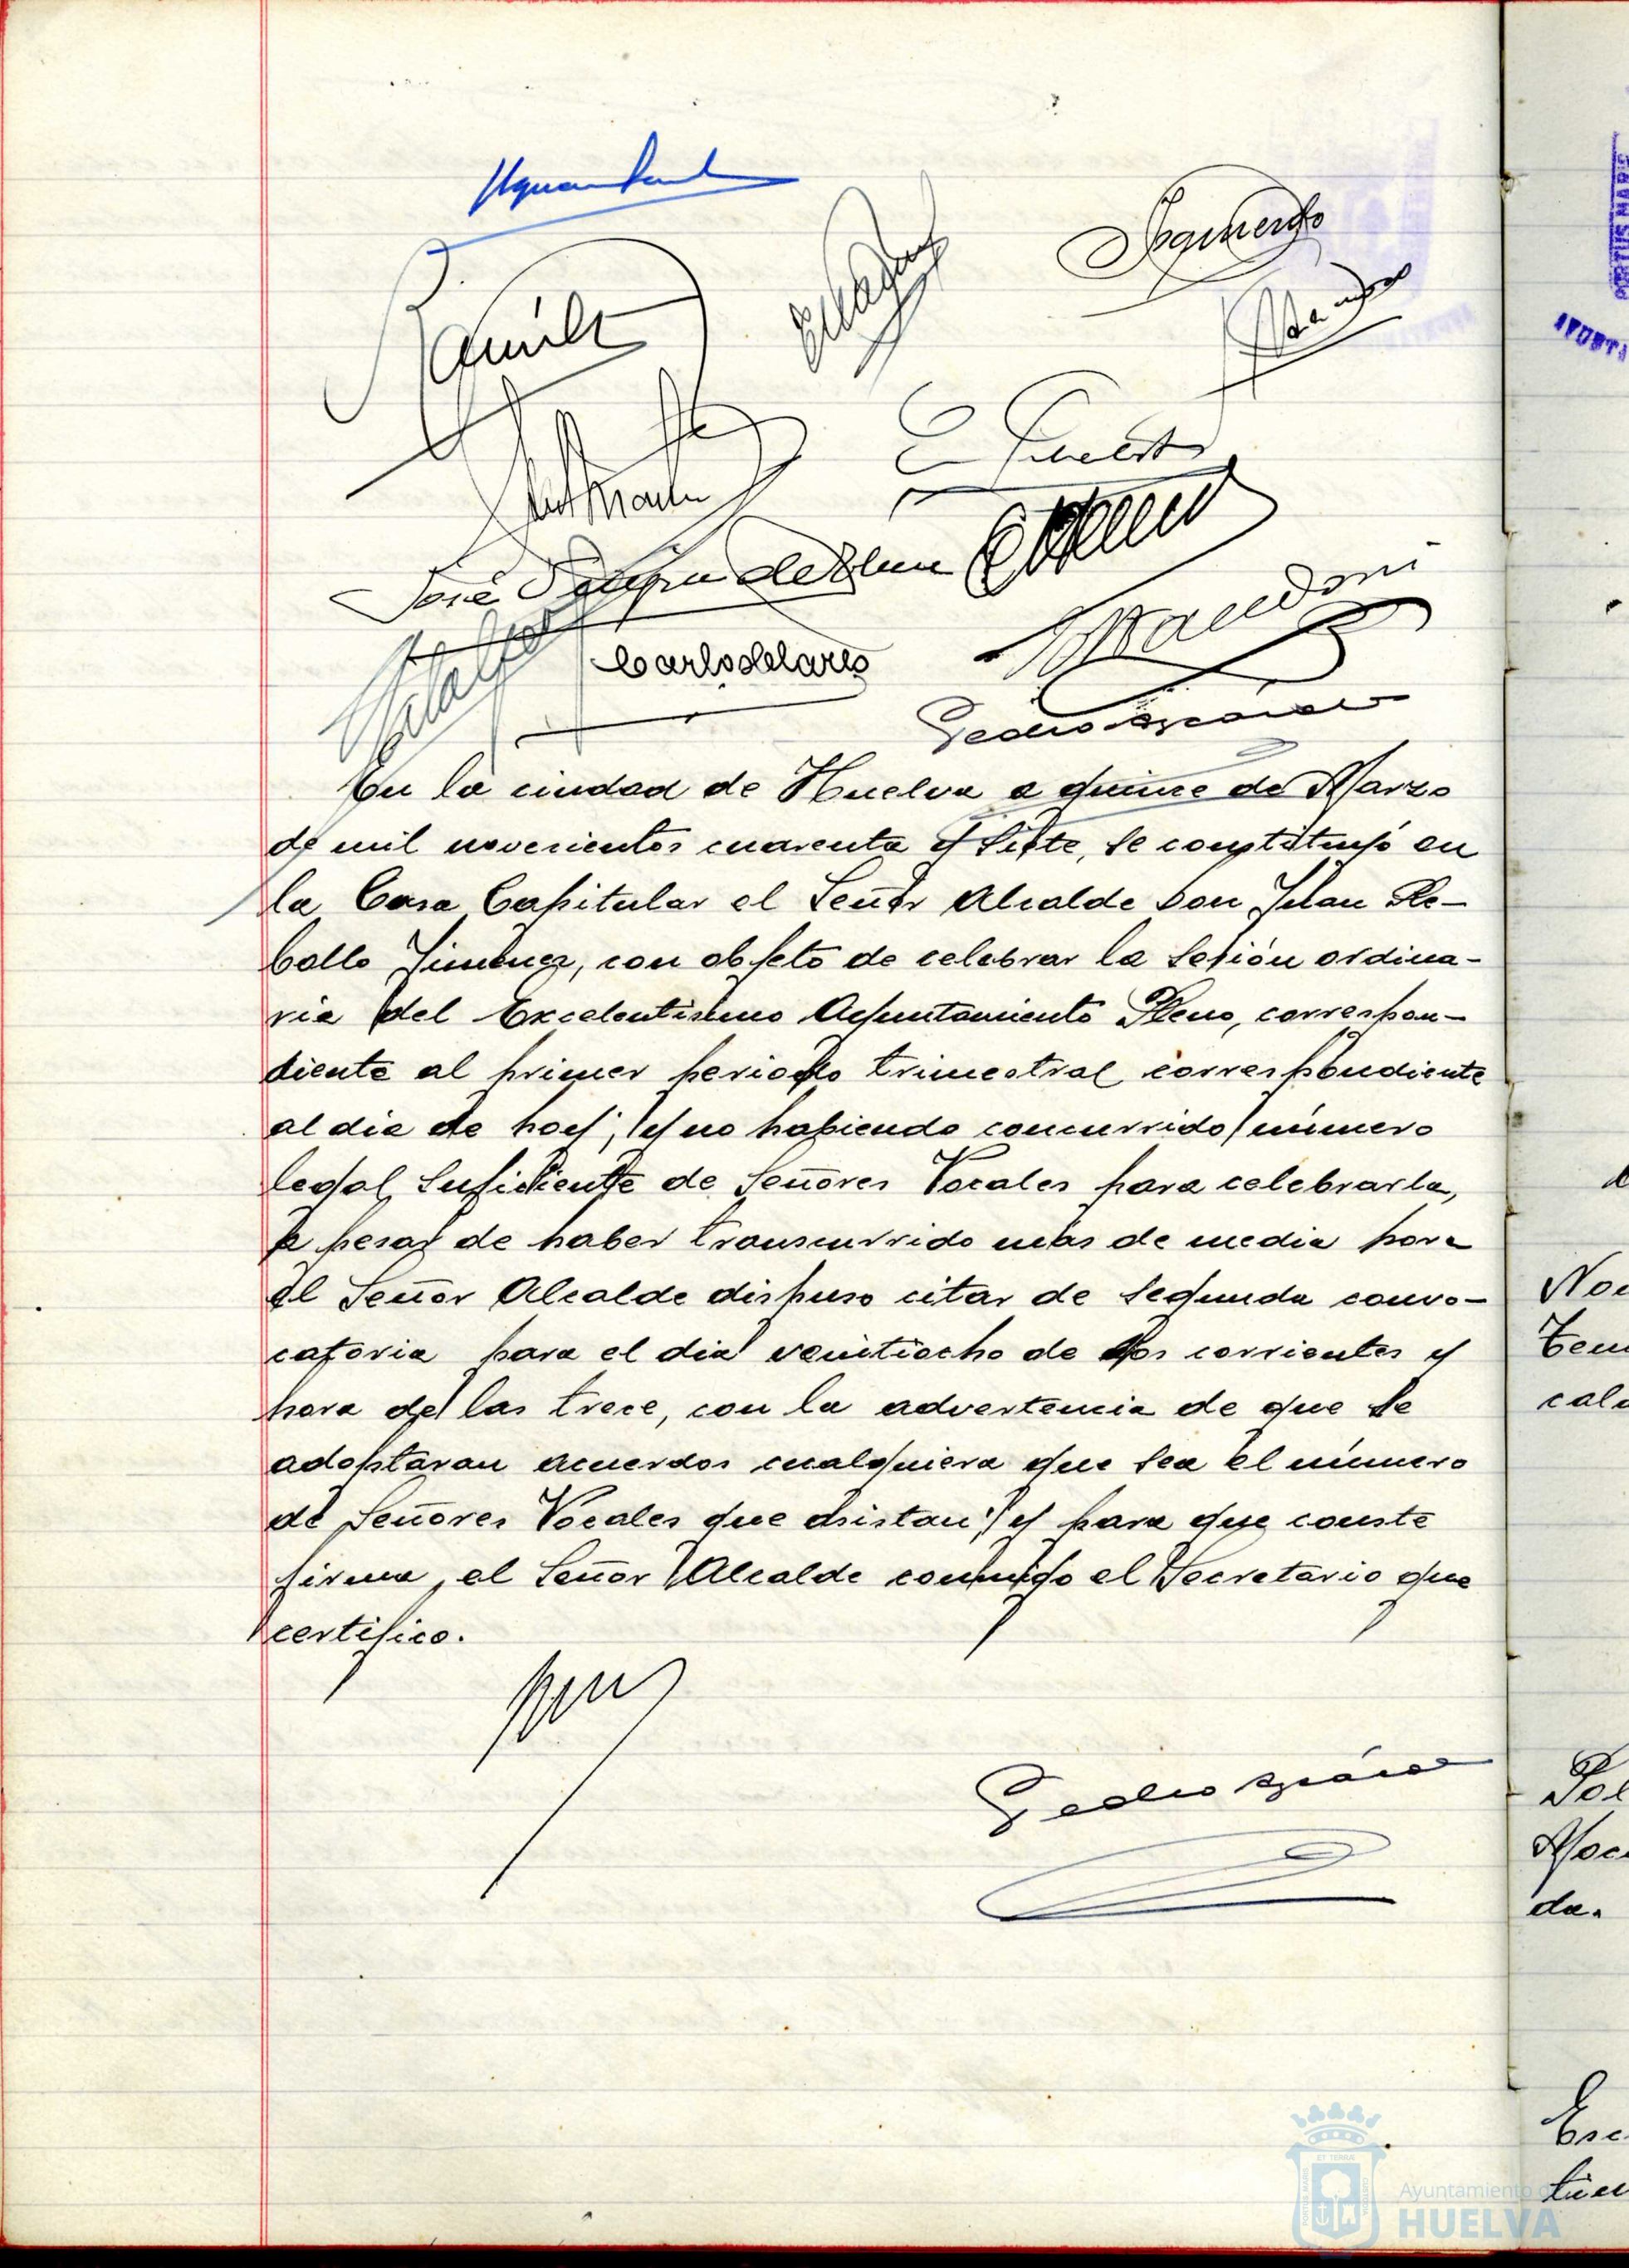 José
Carlos de lares
Pedro
En la ciudad de Huelva a quince de Marzo
de mil novecientos cuarenta y siete, se constituyó en
la Casa Capitular el Señor Alcalde Don Juan Re-
bollo Jiménez, con objeto de celebrar la sesión ordina-
ria del Excelentísimo Ayuntamiento Pleno, correspon-
diente al primer periodo trimestral correspondiente
al dia de hoy; y no habiendo concurrido número
legal suficiente de Señores Vocales para celebrarla,
a pesar de haber transcurrido más de media hora
el Señor Alcalde dispuso citar de segunda convo-
catoria para el dia veintiocho de los corrientes y
hora de las trece, con la advertencia de que se
adoptaran acuerdos cualquiera que sea el número
de Señores Vocales que asistan; y para que conste
firma, el Señor Alcalde conmigo el Secretario que
certifico.
Pedro
Ayuntamiento
HUELVA
PORTUS MARIS
da.